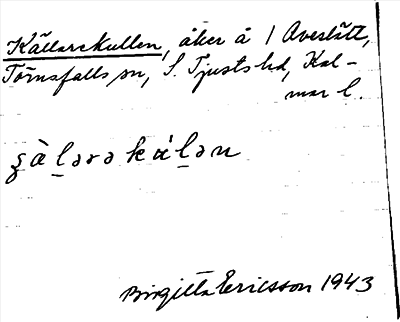 Källarekullen, åker å 1 Averslätt,
Törnsfalls sn, S. Tjusts hd, Kal-
mar l.
Birgitta Ericsson 1943